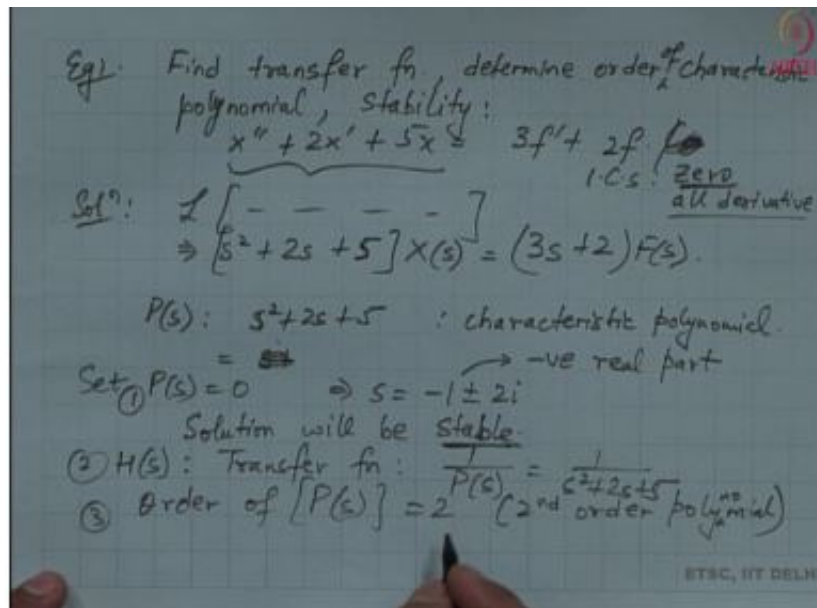 Eg1. Find transfer fn, determine order of characteristic
polynomial, stability:
x" + 2x' + 5x = 3f' + 2f.
I.C.s: zero
all derivative
Solⁿ: L[ - - - - ]
⇒ [s² + 2s + 5] X(s) = (3s + 2) F(s).
P(s): s² + 2s + 5 : characteristic polynomial.
=
→ -ve real part
Set ① P(s) = 0 ⇒ s = -1 ± 2i
Solution will be stable.
② H(s): Transfer fn: 1/P(s) = 1/s²+2s+5
③ Order of [P(s)] = 2 (2nd order polynomial)
ETSC, IIT DELH